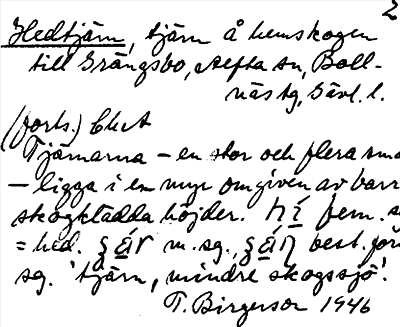 2
Hedtjärn, tjärn å hemskogen
till Grängsbo, Alfta sn, Boll-
näs tg, Gävl. l.
(forts.) Ekt A
Tjärnarna – en stor och flera små
– ligga i en myr omgiven av barr
skogklädda höjder. hí fem. sg
= hed. m. sg., best. form
sg. 'tjärn, mindre skogssjö'.
T. Birgerson 1946